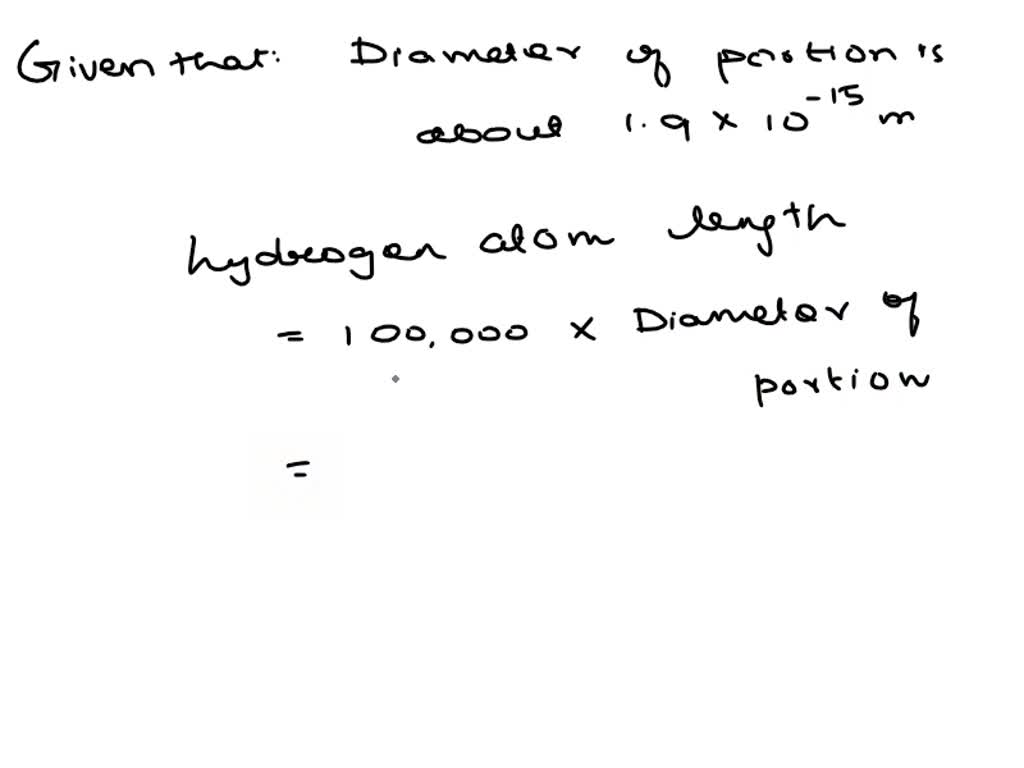 Given that: Diameter of portion is
about 1.9 × 10⁻¹⁵ m
hydrogen atom length
= 100,000 × Diameter of
portion
=